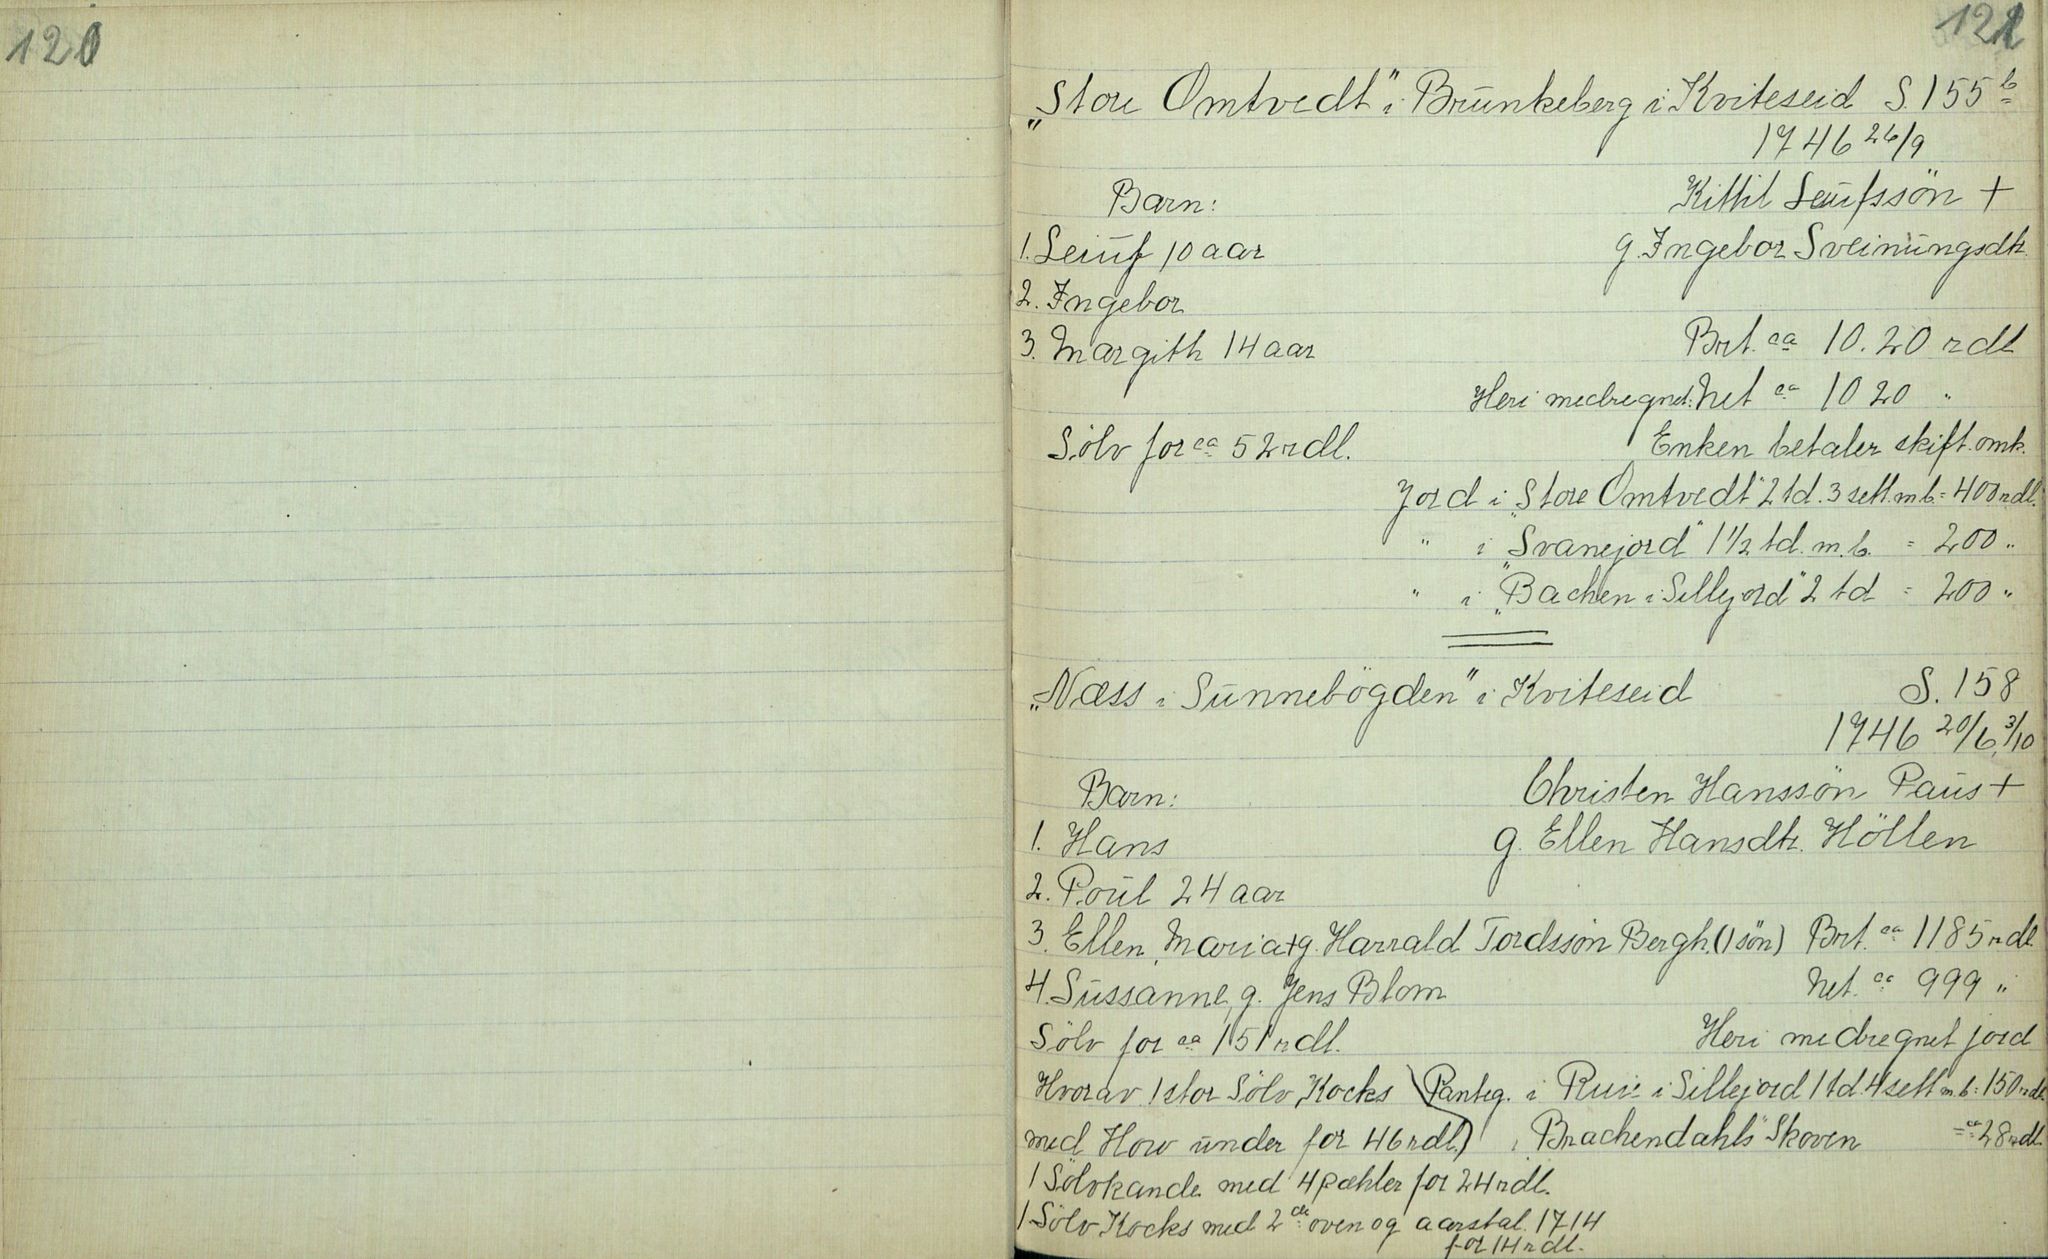 120
121
„Store Omtvedt" i Brünkeberg i Kviteseid S. 155 b
1746 26/9
Barn: Kittil Leiüfssön +
1. Leiüf 10 aar g. Ingebor Sveinüngsdtr.
2. Ingebor
3. Margith 14 aar Brt. ca 10.20 rdl
Heri medregnet: Net ca 1020 "
Sölv for ca 52 rdl. Enken betaler skift.omk.
Jord i „Store Omtvedt" 2 td. 3 sett. m b. = 400 rdl.
" i „Svanejord" 1 1/2 td. m. b. = 200 "
" i „Bachen i Sillejord" 2 td = 200 "
„Næss i Sünnebögden" i Kviteseid S. 158
1746 20/6, 3/10
Barn: Christen Hanssön Paüs +
1. Hans g. Ellen Hansdtr. Höllen
2. Poül 24 aar
3. Ellen Maria + g. Harrald Tordssön Bergh. (1 sön) Brt. ca 1185 rdl
4. Süssanne, g. Jens Blom Net. ca 999 "
Sölv for ca 151 rdl. Heri medregnet jord
Hvorav 1 stor Sölv Kocks Panteg. i Rui i Sillejord 1 td. 4 sett m b = 150 rdl.
med How ünder for 46 rdl.) i „Brachendahls" Skoven = ca 28 rdl.
1 Sölvkande med 4 pæhler for 24 rdl.
1 Sölv Kocks med 2de oven og aarstal. 1714
for 14 rdl.